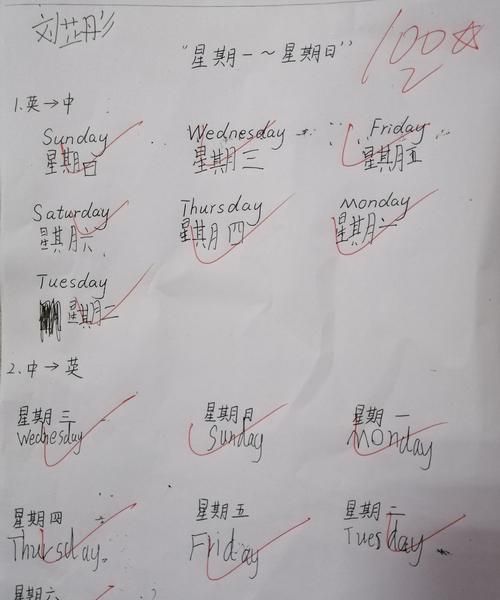 刘芷彤
"星期一~星期日"
100
1.英→中
Sunday Wednesday Friday
星期日 星期三 星期五
Saturday Thursday Monday
星期六 星期四 星期一
Tuesday
星期二
2.中→英
星期三 星期日 星期一
Wednesday Sunday Monday
星期四 星期五 星期二
Thursday. Friday Tuesday
星期六